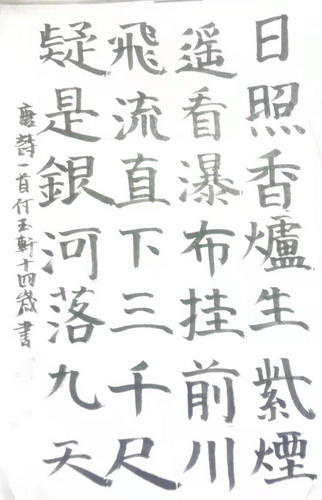 日照香爐生紫煙
遥看瀑布挂前川
飛流直下三千尺
疑是銀河落九天
唐詩一首付玉軒十四歲書